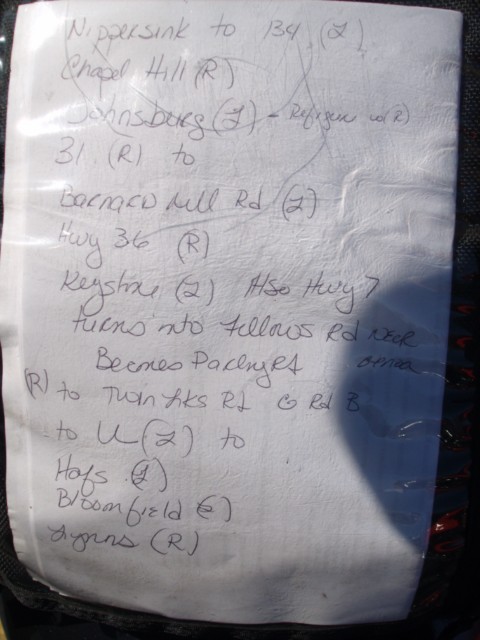 Nippersink to 134 (L)
Chapel Hill (R)
Johnsburg (L) -
31. (R) to
Barnard Mill Rd (L)
Hwy 36 (R)
Keystone (L) Also Hwy 7
turns into Fellows Rd near
Becomes Packard Genoa
(R) to Twin Lks Rd Rd B
to U (L) to
Hafs (L)
Bloomfield
Lyons (R)